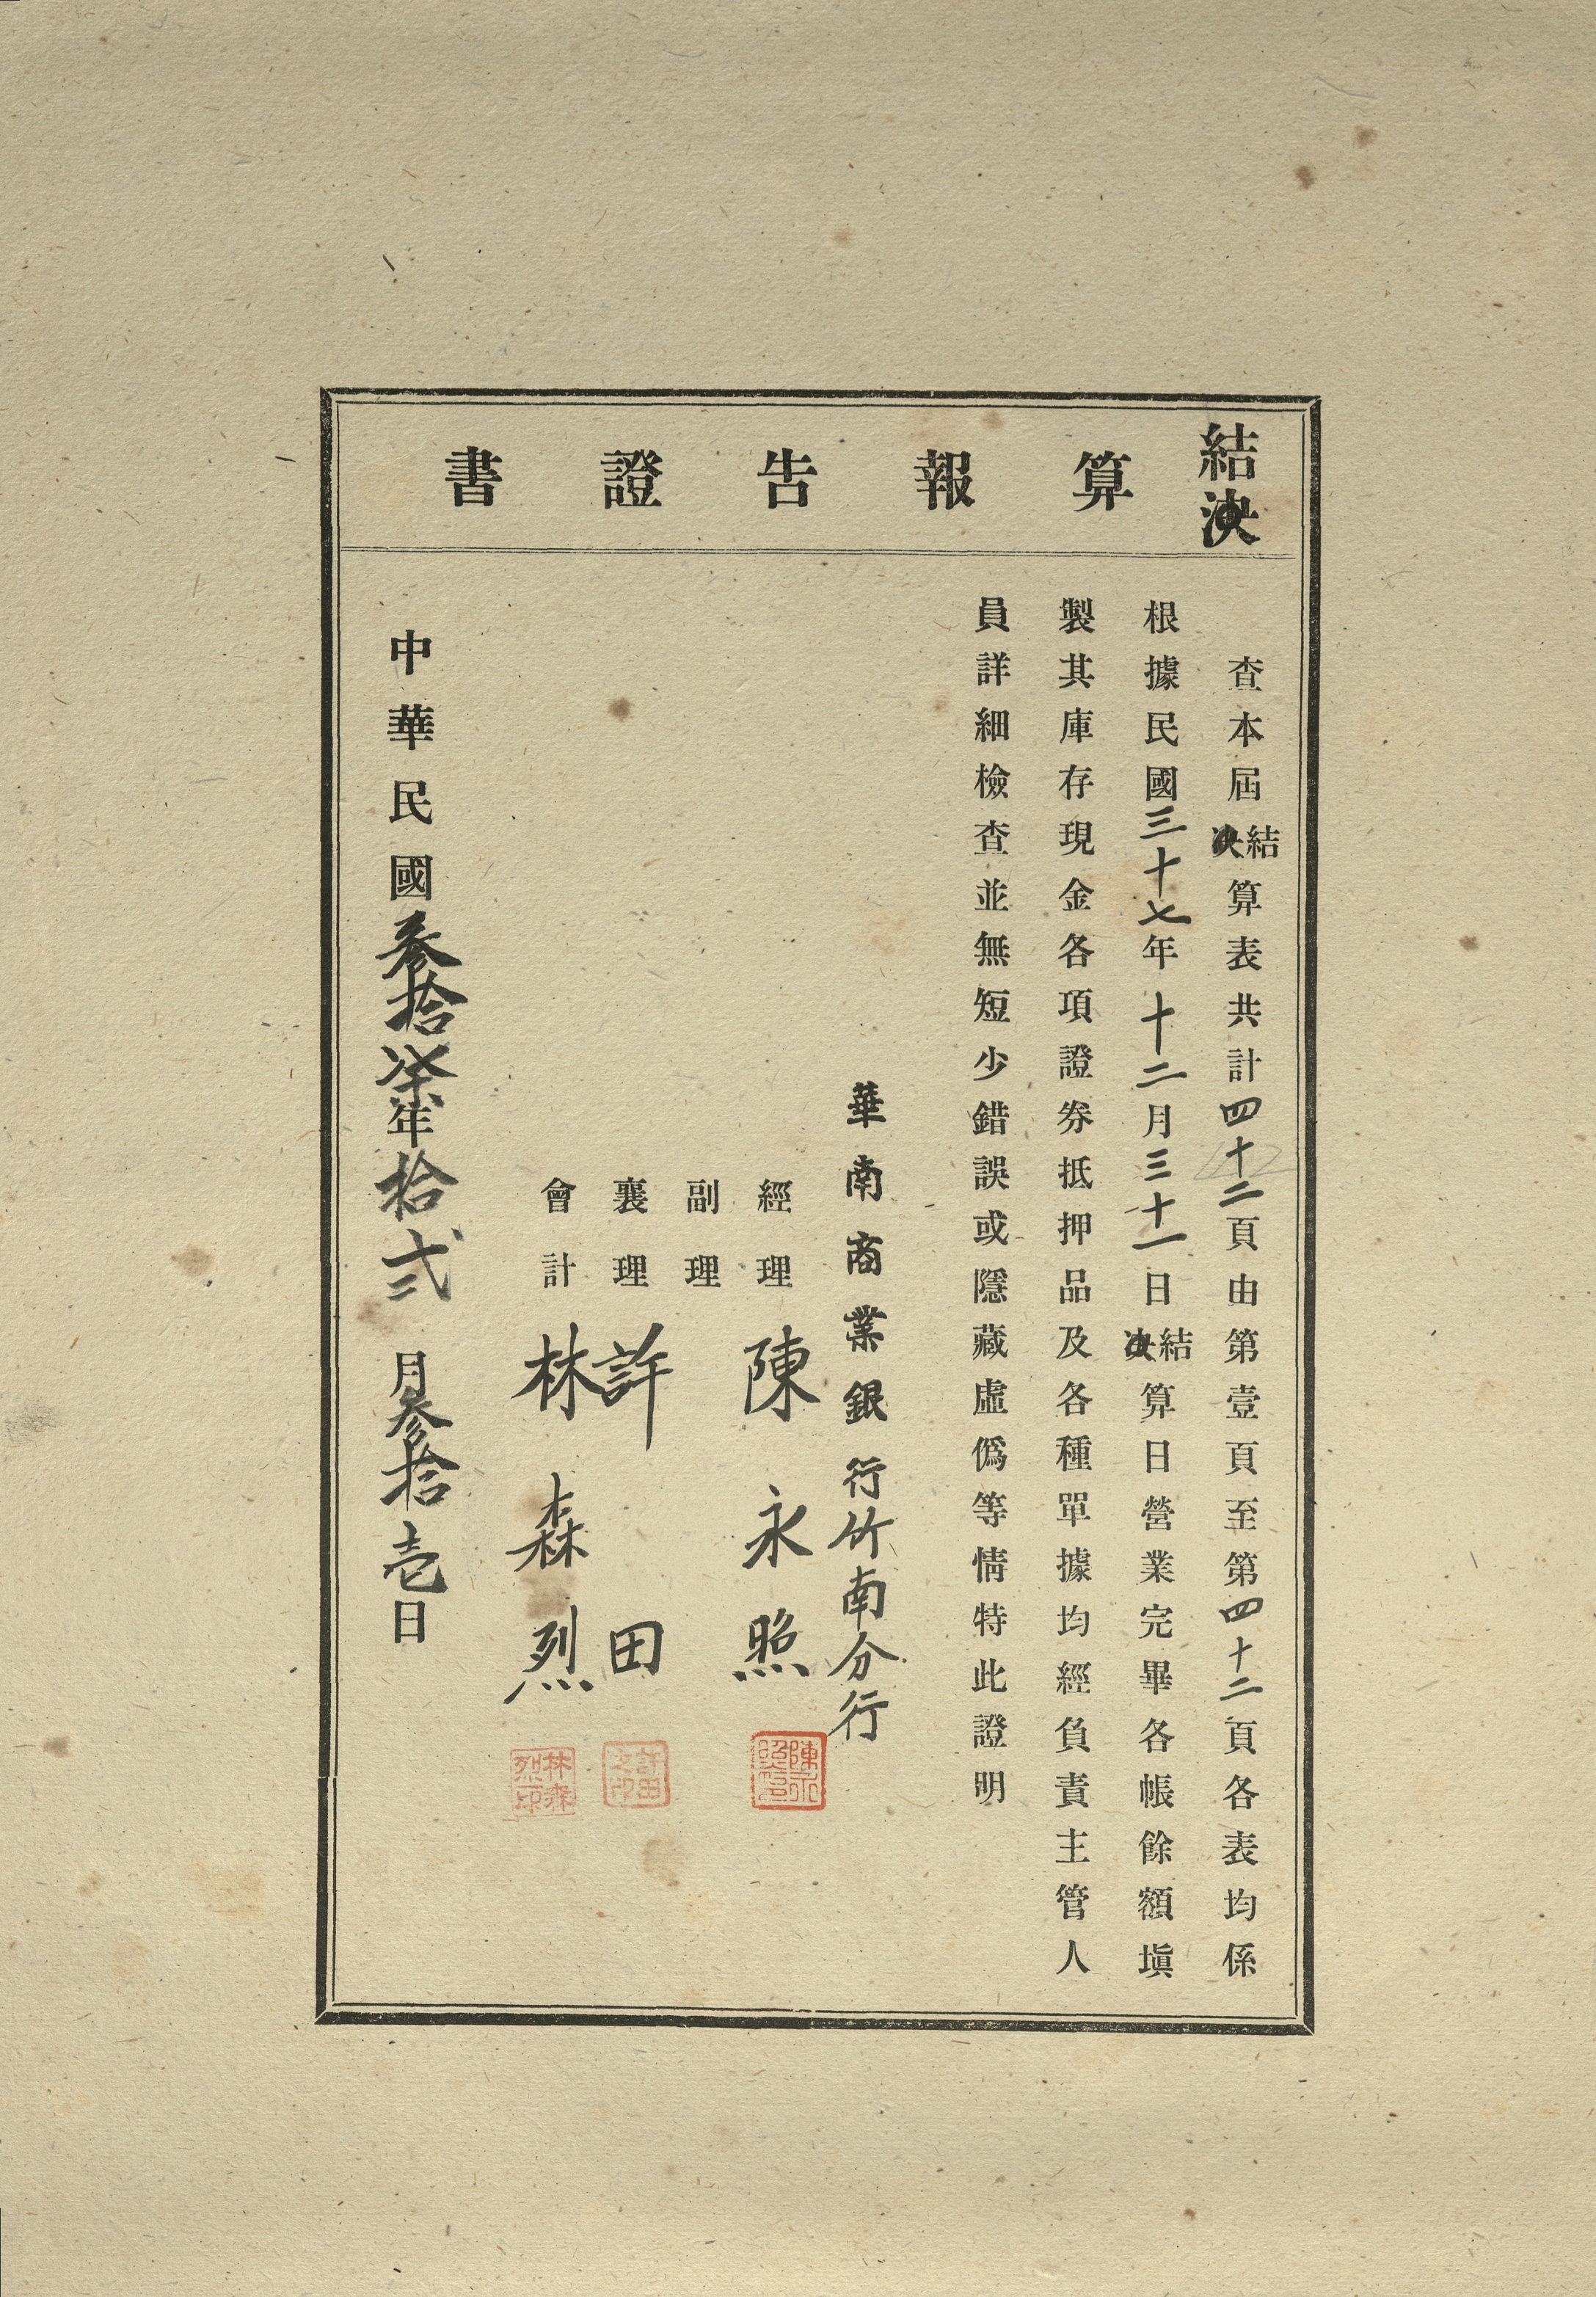 結決算報告證書
查本屆結決算表共計四十二頁由第壹頁至第四十二頁各表均係
根據民國三十七年十二月三十一日結決算日營業完畢各帳餘額塡
製其庫存現金各項證券抵押品及各種單據均經負責主管人
員詳細檢查並無短少錯誤或隱藏虛僞等情特此證明
華南商業銀行竹南分行
經理 陳永照
副理
襄理 許田
會計 林森烈
中華民國叁拾柒年拾弍月叁拾壱日
許田之印
林森烈印